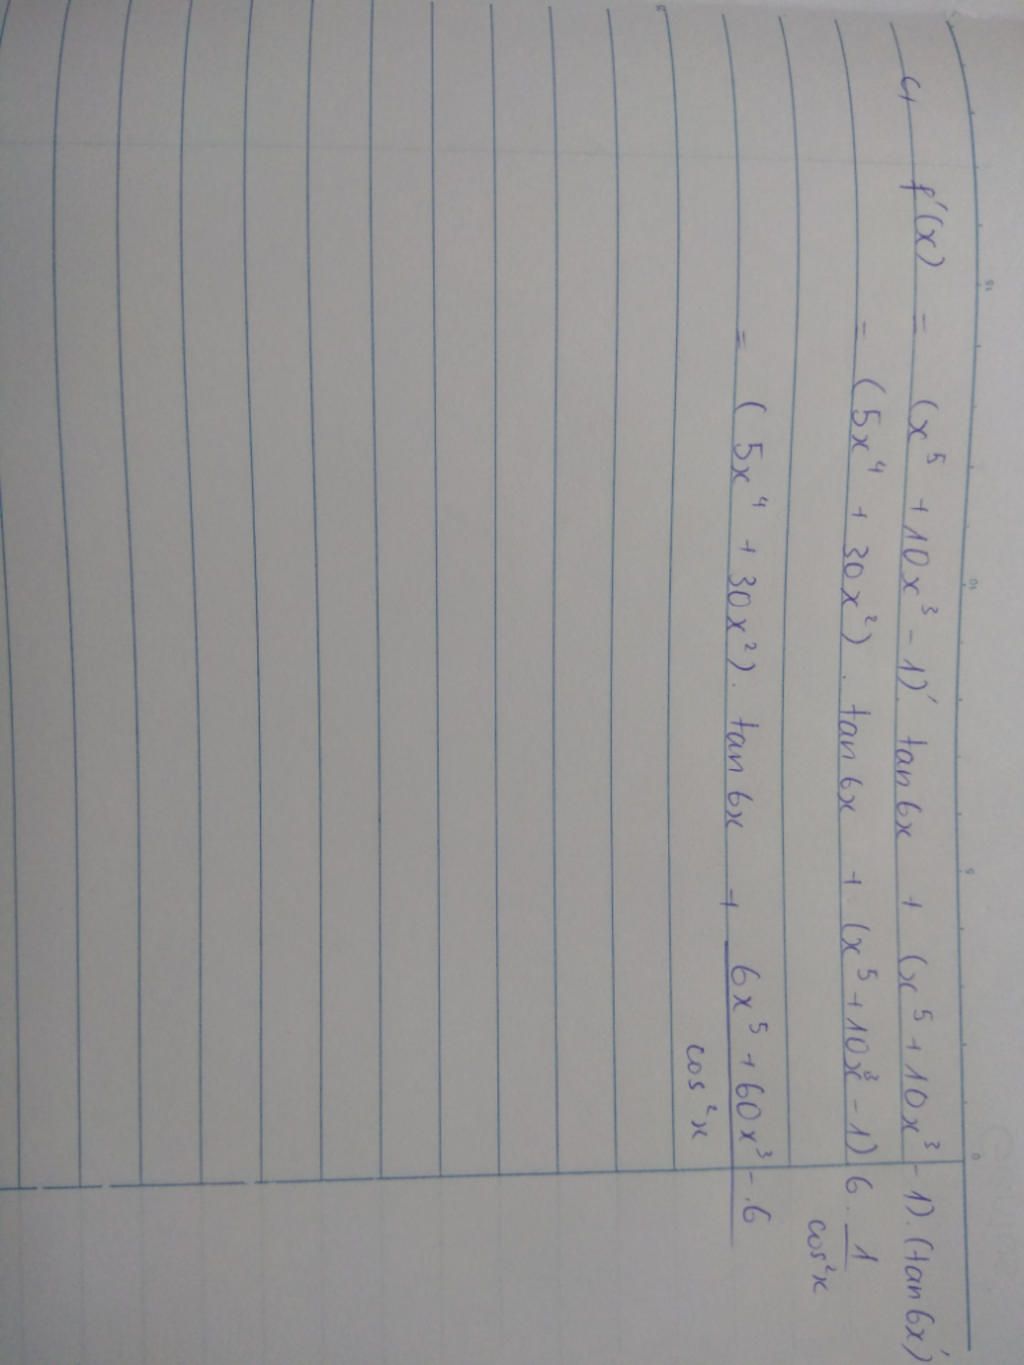 c, f'(x) = (x⁵ + 10x³ - 1)'. tan6x + (x⁵ + 10x³ - 1).(tan6x)'
= (5x⁴ + 30x²) . tan6x + (x⁵ + 10x³ - 1) 6 . 1/cos²x
= (5x⁴ + 30x²). tan6x + (6x⁵ + 60x³ - 6)/cos²x
15 10 5 0